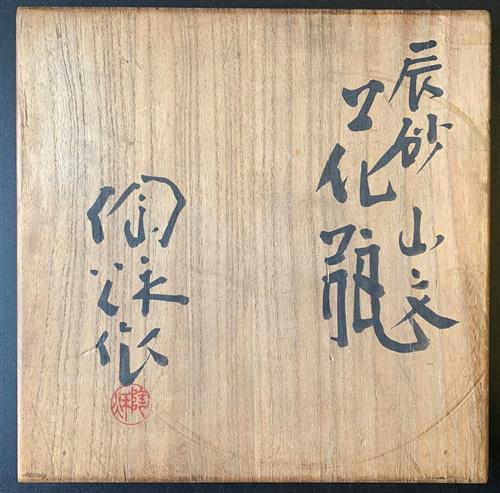 辰砂 山文
花瓶
陶 作